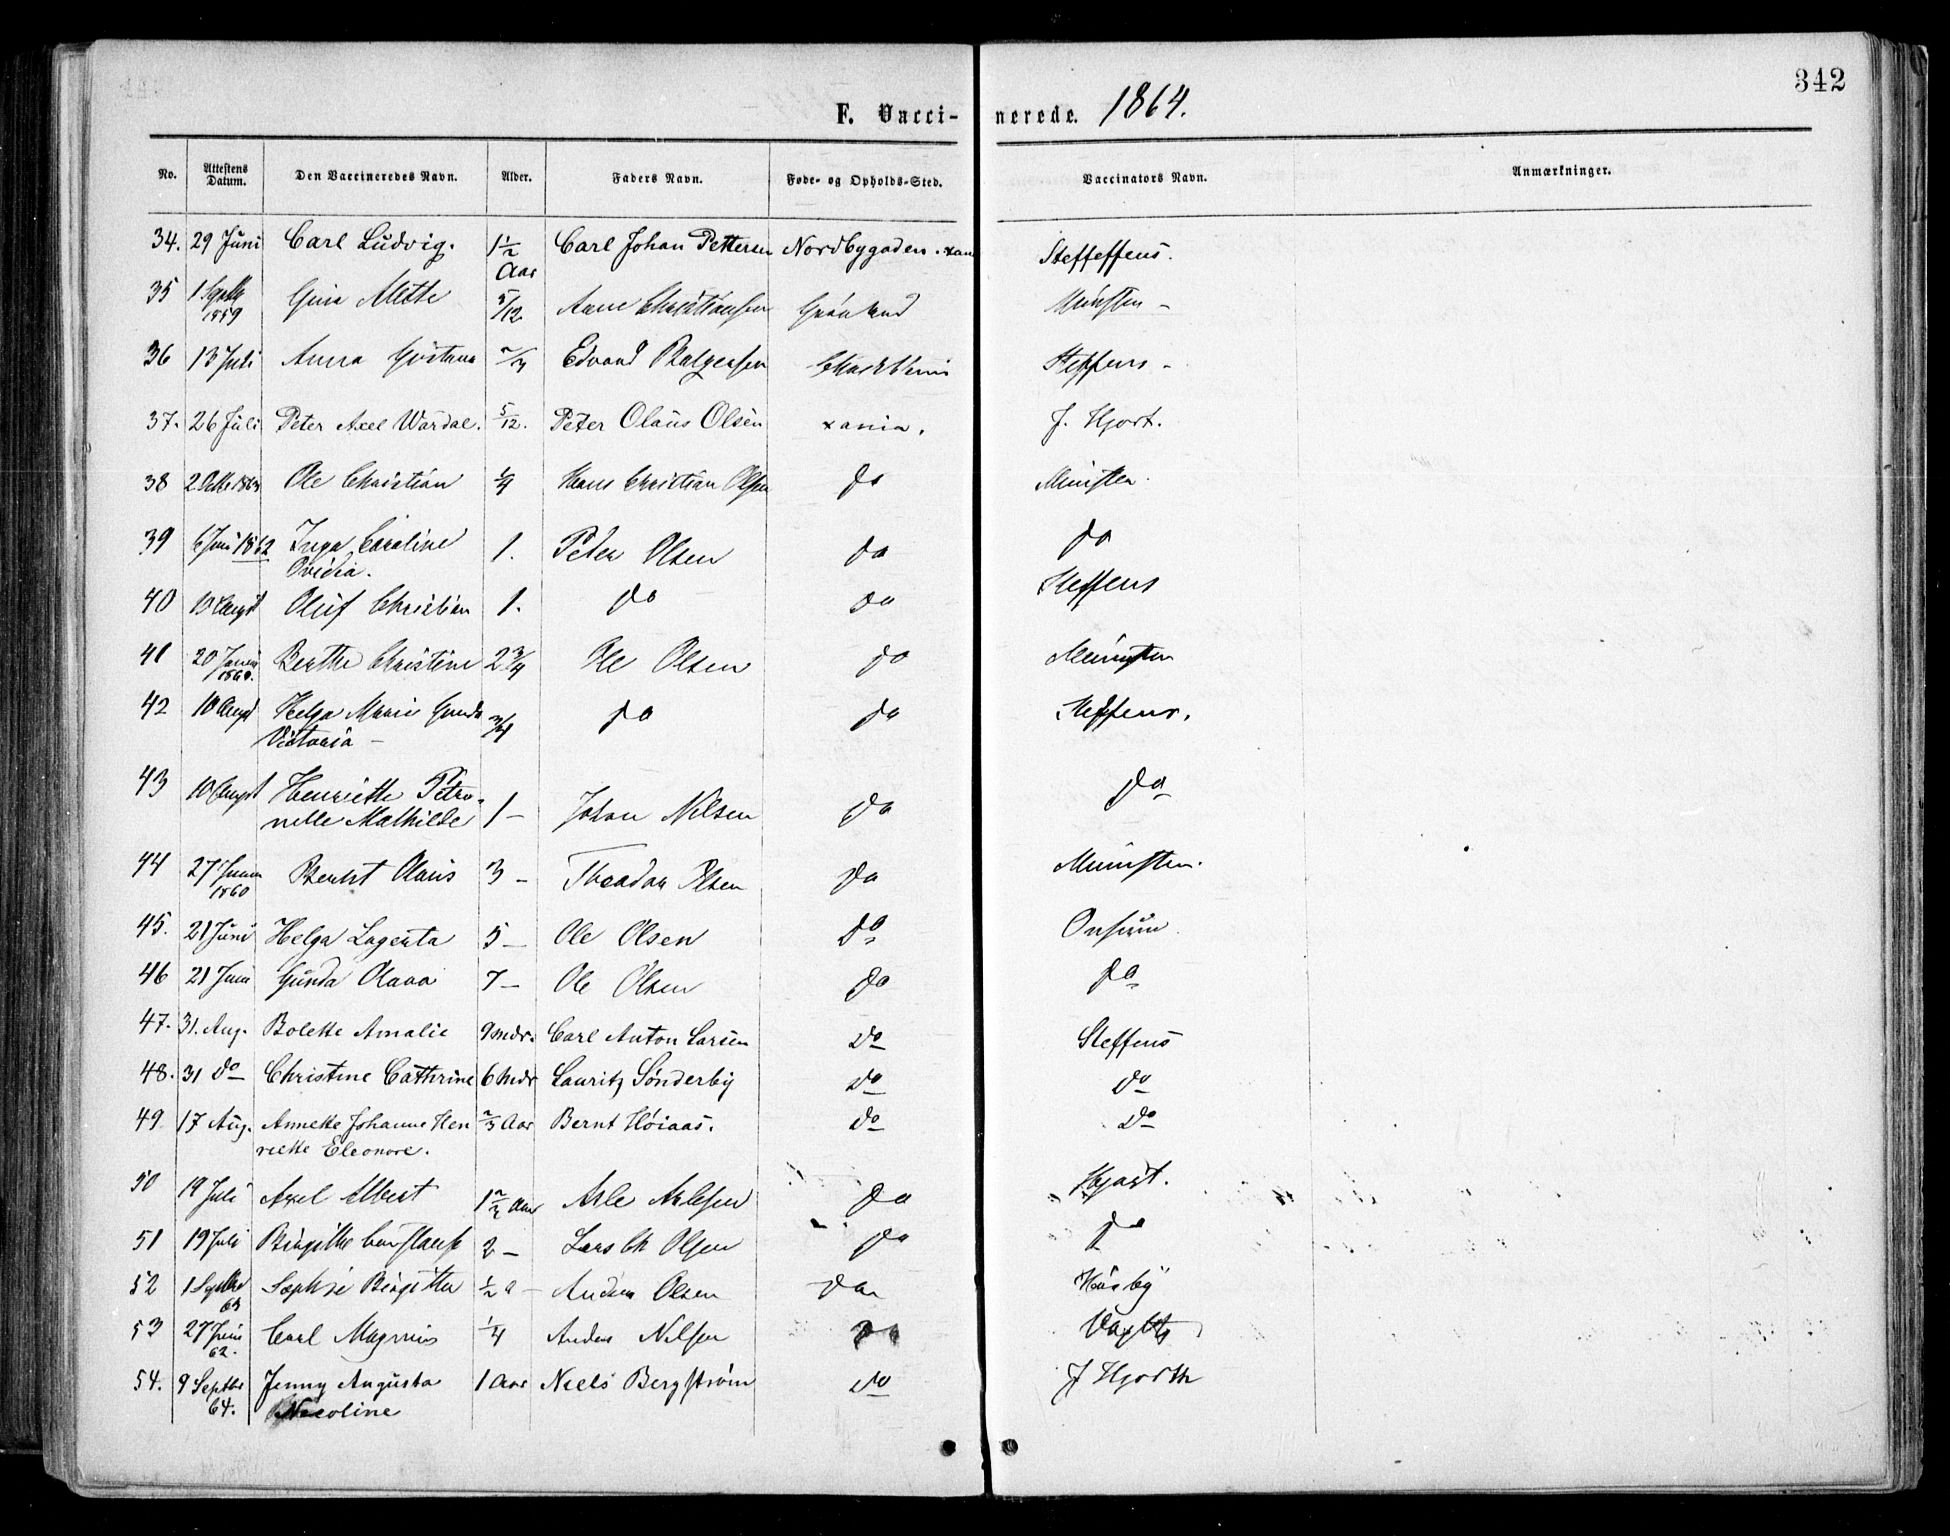 342
F. Vaccinerede. 1864.
No. Attestens Datum. Den Vaccineredes Navn. Alder. Faders Navn. Føde- og Opholds-Sted. Vaccinators Navn. Anmærkninger.
34. 29 Juni Carl Ludvig. 1 1/2 Aar Carl Johan Pettersen Nordbygaden. xania Steffens.
35 1 Septbr 1859 Mette 5/12 Christiansen Grønland Münster -
36 13 Juli Anna Gustava 2/3 Edvard Steffens -
37. 26 Juli Peter Axel Wardal. 5/12. Peter Olaus Olsen xania. J. Hjort.
38 1863 Ole Christian 1/4 Hans Christian Olsen do Münster.
39 6 Juni 1862 Inga Caroline Ovidia. 1. Peter Olsen do do
40 13 Augst Oluf Christian 1. do do Steffens
41 20 1860. Berthe Christine 2 3/4 Ole Olsen do Münster
42 10 Augst Helga Marie Gunda Victoria - 3/4 do do Steffens.
43 10 Augst Henriette Petronelle Mathilde 1 - Johan Nilsen do do
44 27 1860 Bernt Olaus 3 - Theodor Olsen do Münster.
45. 21 Juni Helga Lagerta 5 - Ole Olsen do Onsum
46 21 Juni Gunda Olava 7 - Ole Olsen do do
47. 31. Aug. Bolette Amalie 9 mdr. Carl Anton Larsen do Steffens
48. 31 do Christine Cathrine 6 Mdr Lauritz Sønderby do do
49. 17 Aug. Annette Johanne Henriette Eleonore. 2/3 Aar Bernt Høiaas. do do
50 19 Juli Axel Albert 1 1/2 Aar Asle Aslesen do Hjort.
51 19 Juli Birgitte 2 - Lars Ch Olsen do do
52 1 Septbr 63 Sophie Birgitta 1/2 a - Anders Olsen do Huusby
53 27 Juni 62. Carl Magnus 1/4 Anders Nilsen do
54. 9 Septbr 64. Jenny Augusta Nicoline 1 Aar Niels Bergstrøm do J Hjorth